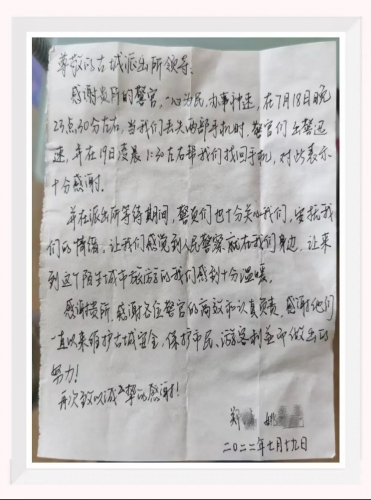 尊敬的古城派出所领导:
感谢贵所的警官,一心为民,办事神速,在7月18日晚
23点30分左右,当我们丢失两部手机时,警官们出警迅
速,并在19日凌晨1:30左右帮我们找回手机,对此表示
十分感谢。
并在派出所等待期间,警员们也十分关心我们,安抚我
们的情绪,让我们感觉到人民警察就在我们身边,让来
到这个陌生城市旅游的我们感到十分温暖。
感谢贵所,感谢各位警官的高效和认真负责,感谢他们
一直以来维护古城安全,保护市民、游客利益而做出的
努力!
再次致以诚挚的感谢!
郑 姚
二〇二二年七月十九日